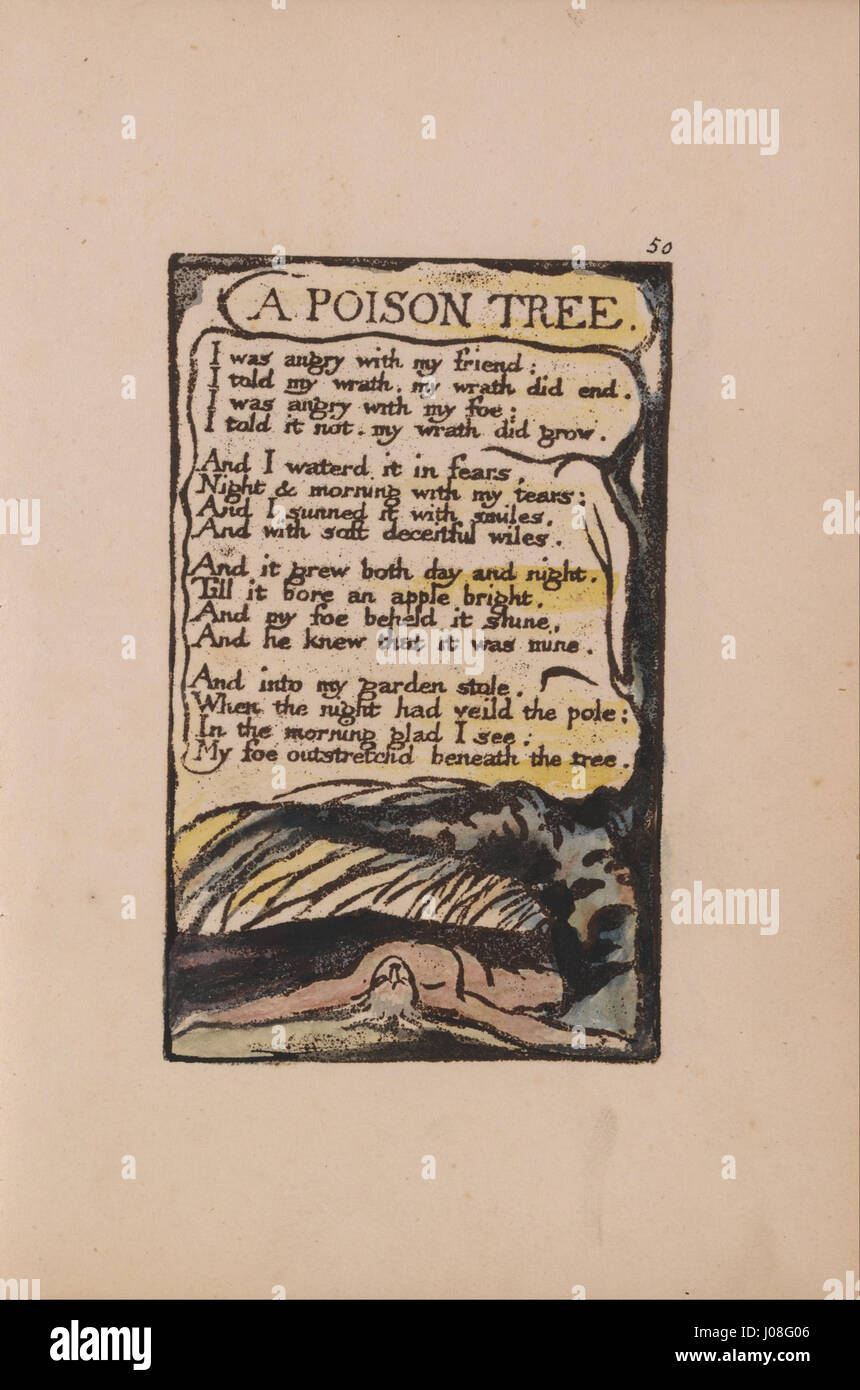 50
A POISON TREE.
I was angry with my friend:
I told my wrath. my wrath did end.
I was angry with my foe:
I told it not. my wrath did grow.
And I waterd it in fears,
Night & morning with my tears:
And I sunned it with smiles,
And with soft deceitful wiles.
And it grew both day and night.
Till it bore an apple bright.
And my foe beheld it shine,
And he knew that it was mine.
And into my garden stole,
When the night had veild the pole:
In the morning glad I see;
My foe outstretchd beneath the tree.
a
a
alamy
a
a
a
a
alamy
a
a
a
alamy
a
a
a
a
alamy
Image ID: J08G06
www.alamy.com